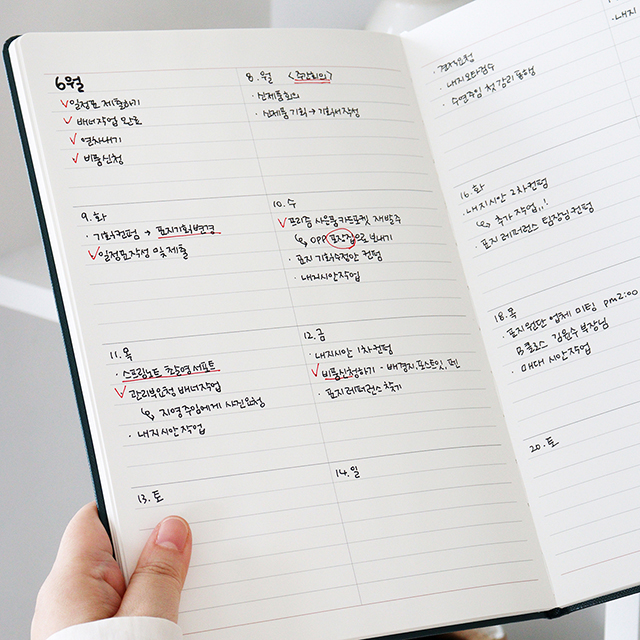 6월
일정표 제출하기
배너작업 완료
연차내기
비품신청
8. 월 <주간회의>
· 신제품회의
· 신제품 기획 → 기획서작성
9. 화
· 기획컨펌 → 표지기획변경
일정표작성 및 제출
10. 수
프리즘 사은품 카드포켓 재발주
↳ OPP 포장접으로 보내기
· 표지 기획수정안 컨펌
· 내지시안작업
11. 목
· 스프링노트 촬영 서포트
관리부요청 배너작업
↳ 지영주임에게 사진요청
· 내지시안작업
12. 금
· 내지시안 1차컨펌
비품신청하기 - 배경지, 포스트잇, 펜
· 표지 레퍼런스 찾기
13. 토
14. 일
· 견적요청
· 내지오타검수
· 수연주임 첫 감리 동행
· 내지
16. 화
· 내지시안 2차컨펌
↳ 추가작업..!
· 표지 레퍼런스 팀장님컨펌
18. 목
· 표지원단 업체 미팅 pm 2:00
B클로스 김윤수 부장님
· 매대 시안작업
20. 토